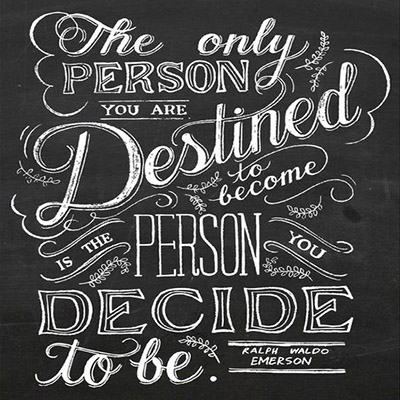 The only
PERSON
YOU ARE
Destined
to become
IS THE PERSON YOU
DECIDE
to be.
RALPH WALDO
EMERSON